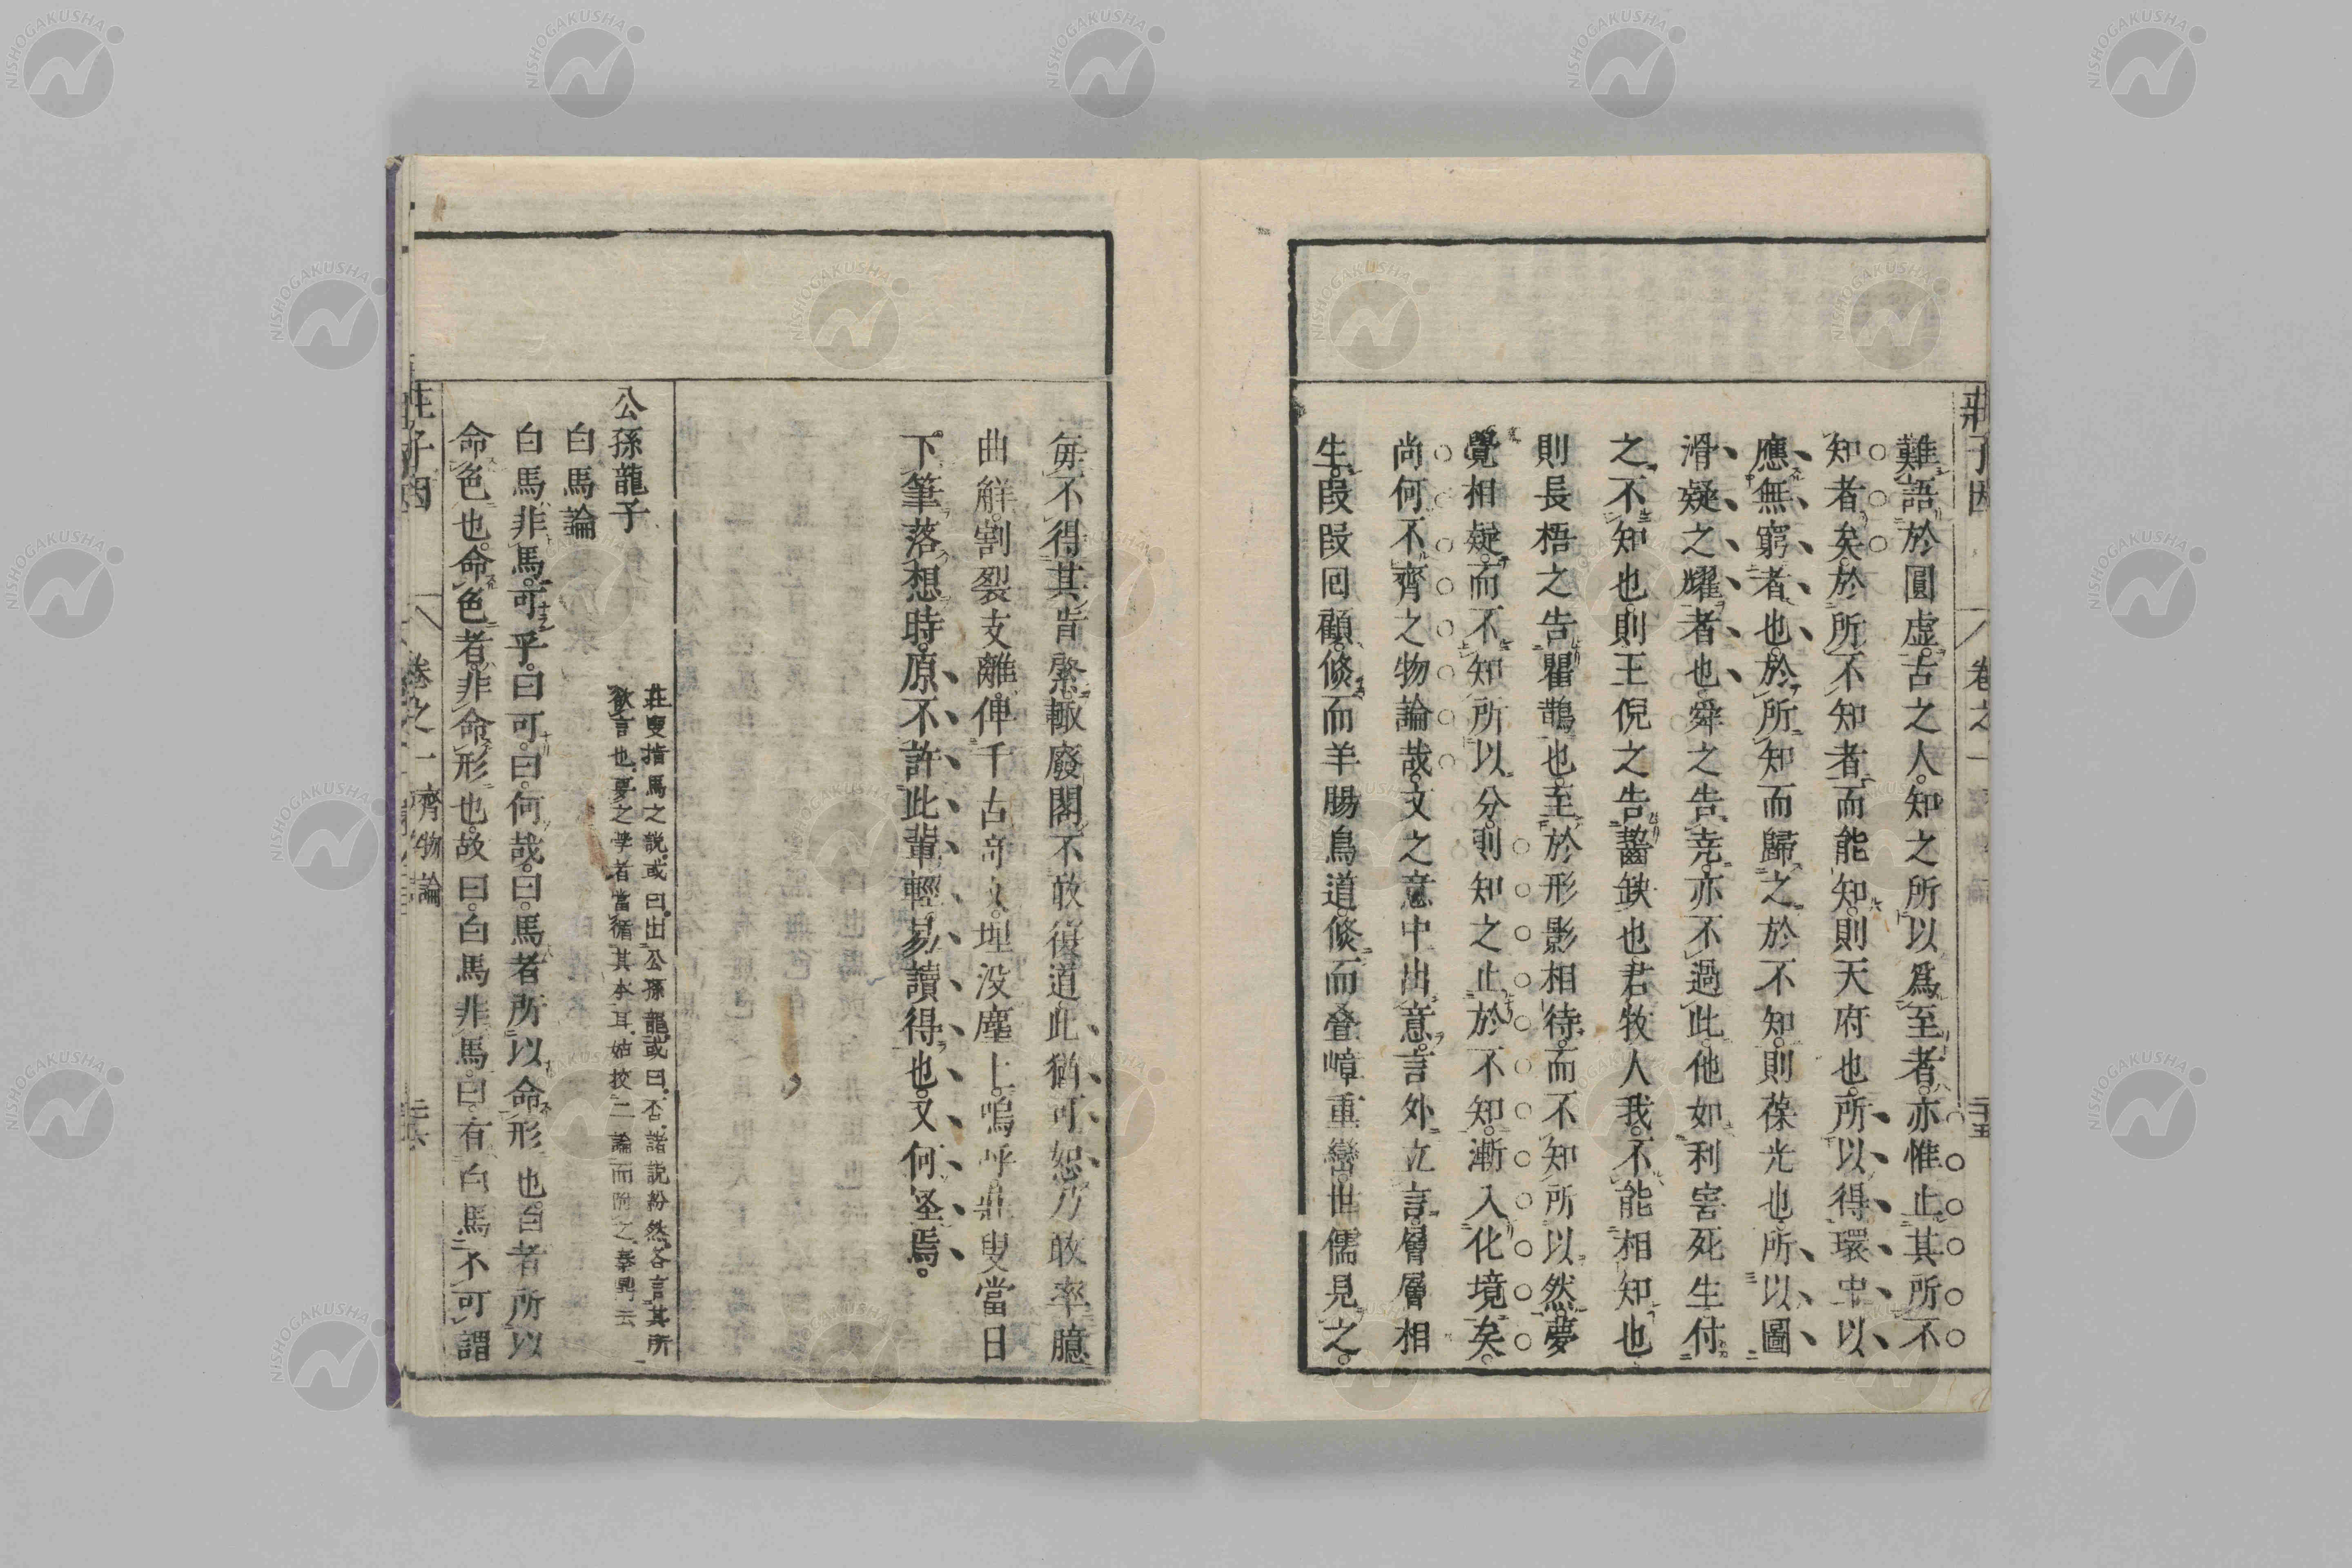 莊子因 卷之一
難語於圓虛古之人。知之所以爲至者。亦惟止其所不
知者矣。於所不知者而能知。則天府也。所以得環中以
應無窮者也。於所知而歸之於不知。則葆光也。所以圖
滑疑之耀者也。舜之告堯。亦不過此。他如利害死生付
之不知也。則王倪之告齧缺也。君牧人我。不能相知也
則長梧之告瞿鵲也。至於形影相待。而不知所以然。夢
覺相疑。而不知所以分。則知之止於不知。漸入化境矣。
尚何不齊之物論哉。文之意中出意。言外立言。層層相
生。段段回顧。倏而羊腸鳥道。倏而叠嶂重巒。世儒見之。
每不得其肯綮。輙廢閣不敢復道。此猶可恕。乃敢率臆
曲解。割裂支離。俾千古奇文。埋没塵土。嗚呼。莊叟當日
下筆落想時。原不許此輩輕易讀得也。又何怪焉。
公孫龍子
莊叟指馬之說。或曰。出公孫龍。或曰。否。諸說紛然。各言其所
欲言也。要之學者當循其本耳。姑抜二論而附之。秦鼎云
白馬論
白馬非馬。可乎。曰可。曰。何哉。曰。馬者所以命形也。白者所以
命色也。命色者。非命形也。故曰。白馬非馬。曰。有白馬不可謂
莊子因 卷之一 齊物論
NISHOGAKUSHA